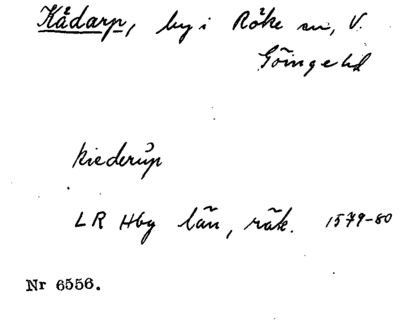 Kådarp, by i Röke sn, V.
Göinge hd
Kiederup
LR Hbg län, räk. 1579-80
Nr 6556.